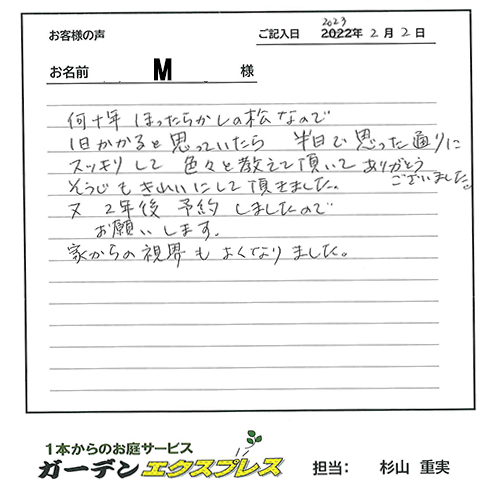 お客様の声
ご記入日 2022年 2月 2日
2023
お名前 M 様
何十年 ほったらかしの松なので
1日かかると思っていたら 半日で思った通りに
スッキリして 色々と教えて頂いて ありがとう
ございました。
そうじもきれいにして頂きました。
又 2年後 予約しましたので
お願いします。
家からの視界もよくなりました。
1本からのお庭サービス
ガーデンエクスプレス
担当: 杉山 重実